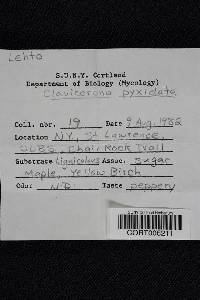 Lehto
S.U.N.Y. Cortland
Department of Biology (Mycology)
Clavicorona pyxidata
Coll. nbr. 19 Date 9 Aug. 1982
Location NY, St Lawrence
CLBS, Chair Rock Trail
Substrate Lignicolous Assoc. Sugar
Maple, Yellow Birch
Odor N.D. Taste peppery
CORT006211